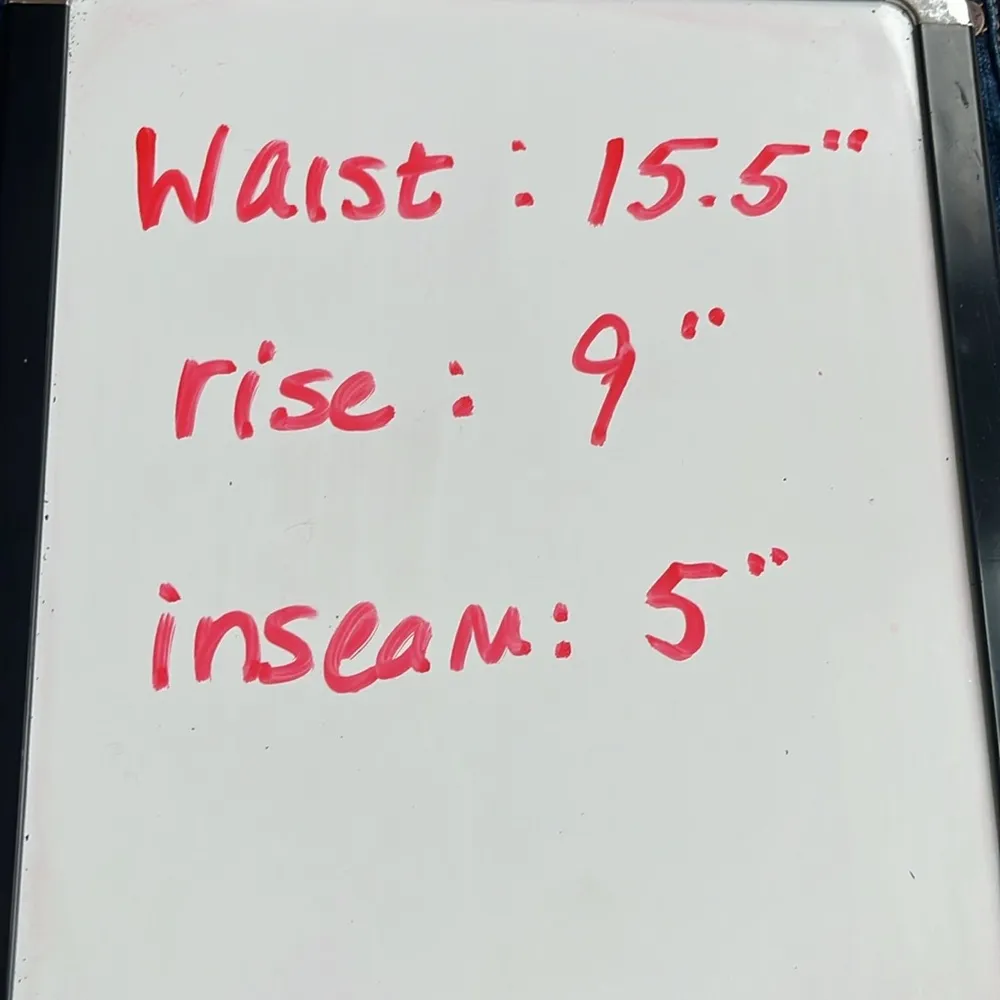 Waist : 15.5"
rise : 9"
inseam: 5"